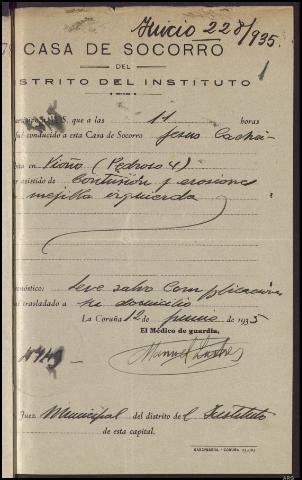 Juicio 228/935.
1
CASA DE SOCORRO
DEL
STRITO DEL INSTITUTO
S, que a las 11 horas
fué conducido a esta Casa de Socorro Jesus
ita en Vioño (Pedroso 4)
asistido de Contusión y erosiones
mejilla izquierda
nóstico: Leve salvo complicación
trasladado a su domicilio
La Coruña 12 de junio de 1935
El Médico de guardia,
Manuel
Juez Municipal del distrito de l Instituto
de esta capital.